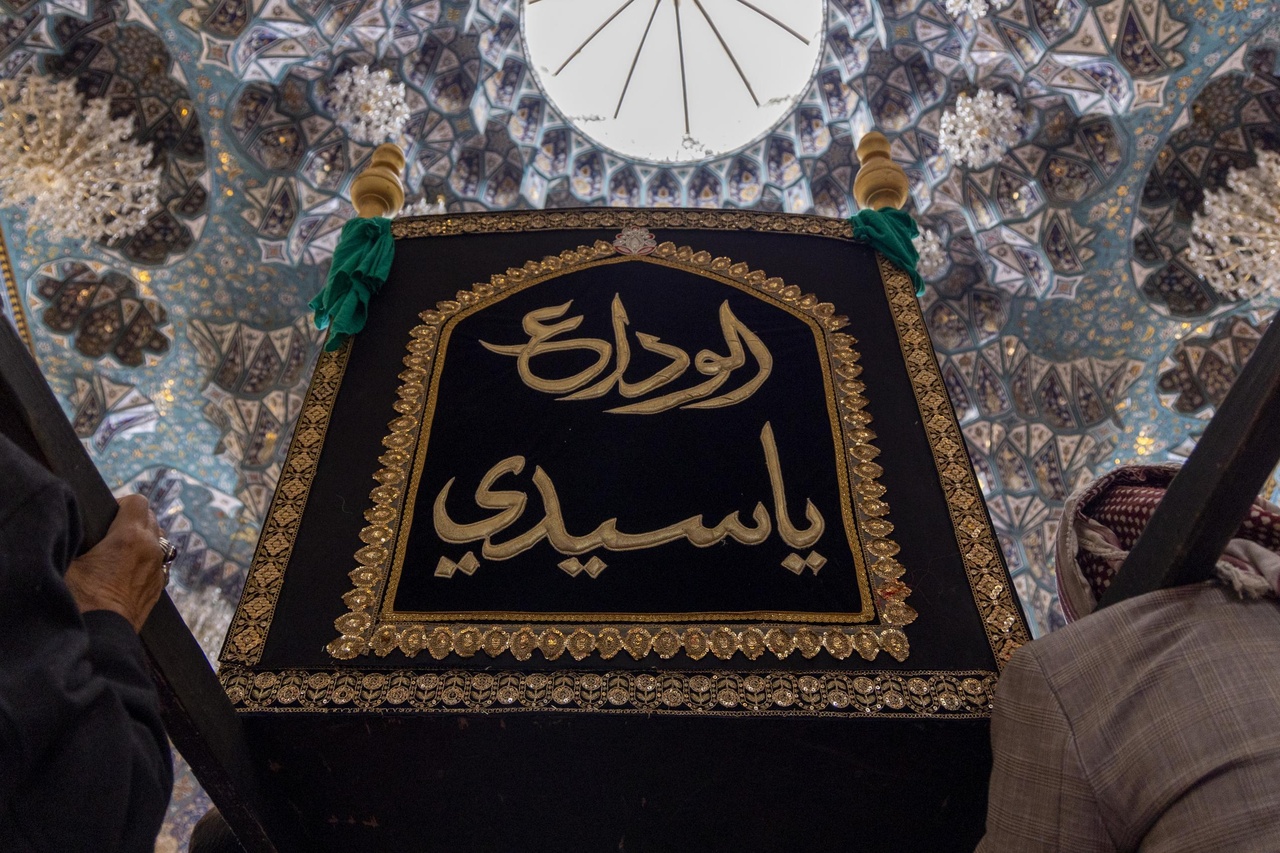 الوداع
ياسيدي